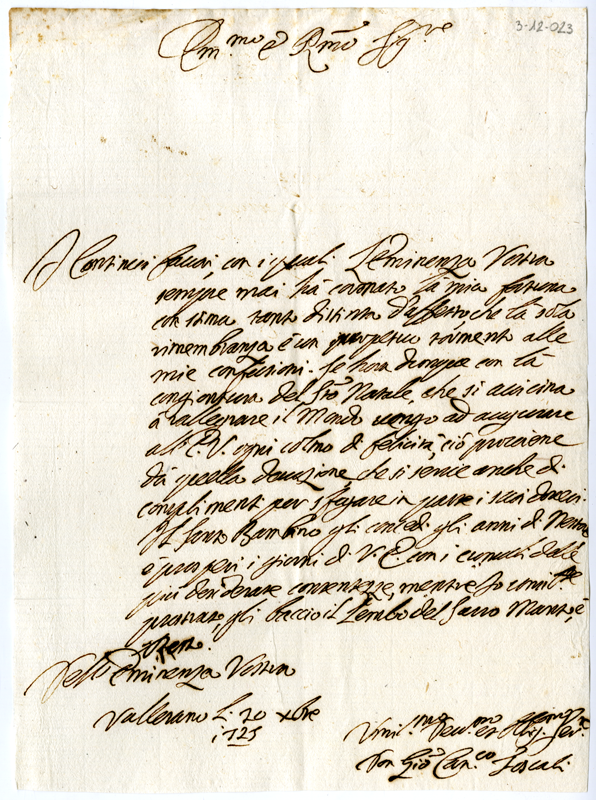 3-12-023
Em.mo e Rmo Sig.re
I Continui favori, con i quali L'Eminenza Vostra
sempre mai hà coronato la mia fortuna
con stima tanto distinta d'affetto che la sola
rimembranza è un perpetuo tormento alle
mie confusioni. Se hora dunque con la
congiontura del Sto Natale, che si avicina
à rallegrare il Mondo vengo ad augurare
all'E.V. ogni colmo di felicità, ciò proviene
dà quella devozione che si serve anche di
complimenti per sfogare in parte i suoi doveri.
Il Santo Bambino gli concedi gli anni di
e prosperi i giorni di V.E. con i cumuli delle
più desiderate contentezze, mentre Io umil.te
prostrato, gli baccio il Lembo del Sacro Manto, è
resto.
Dell'Eminenza Vostra
Vallerano L. 20 xbre
1725
Umil.mo Dev.mo et Obb.
Don Gio. Can.co